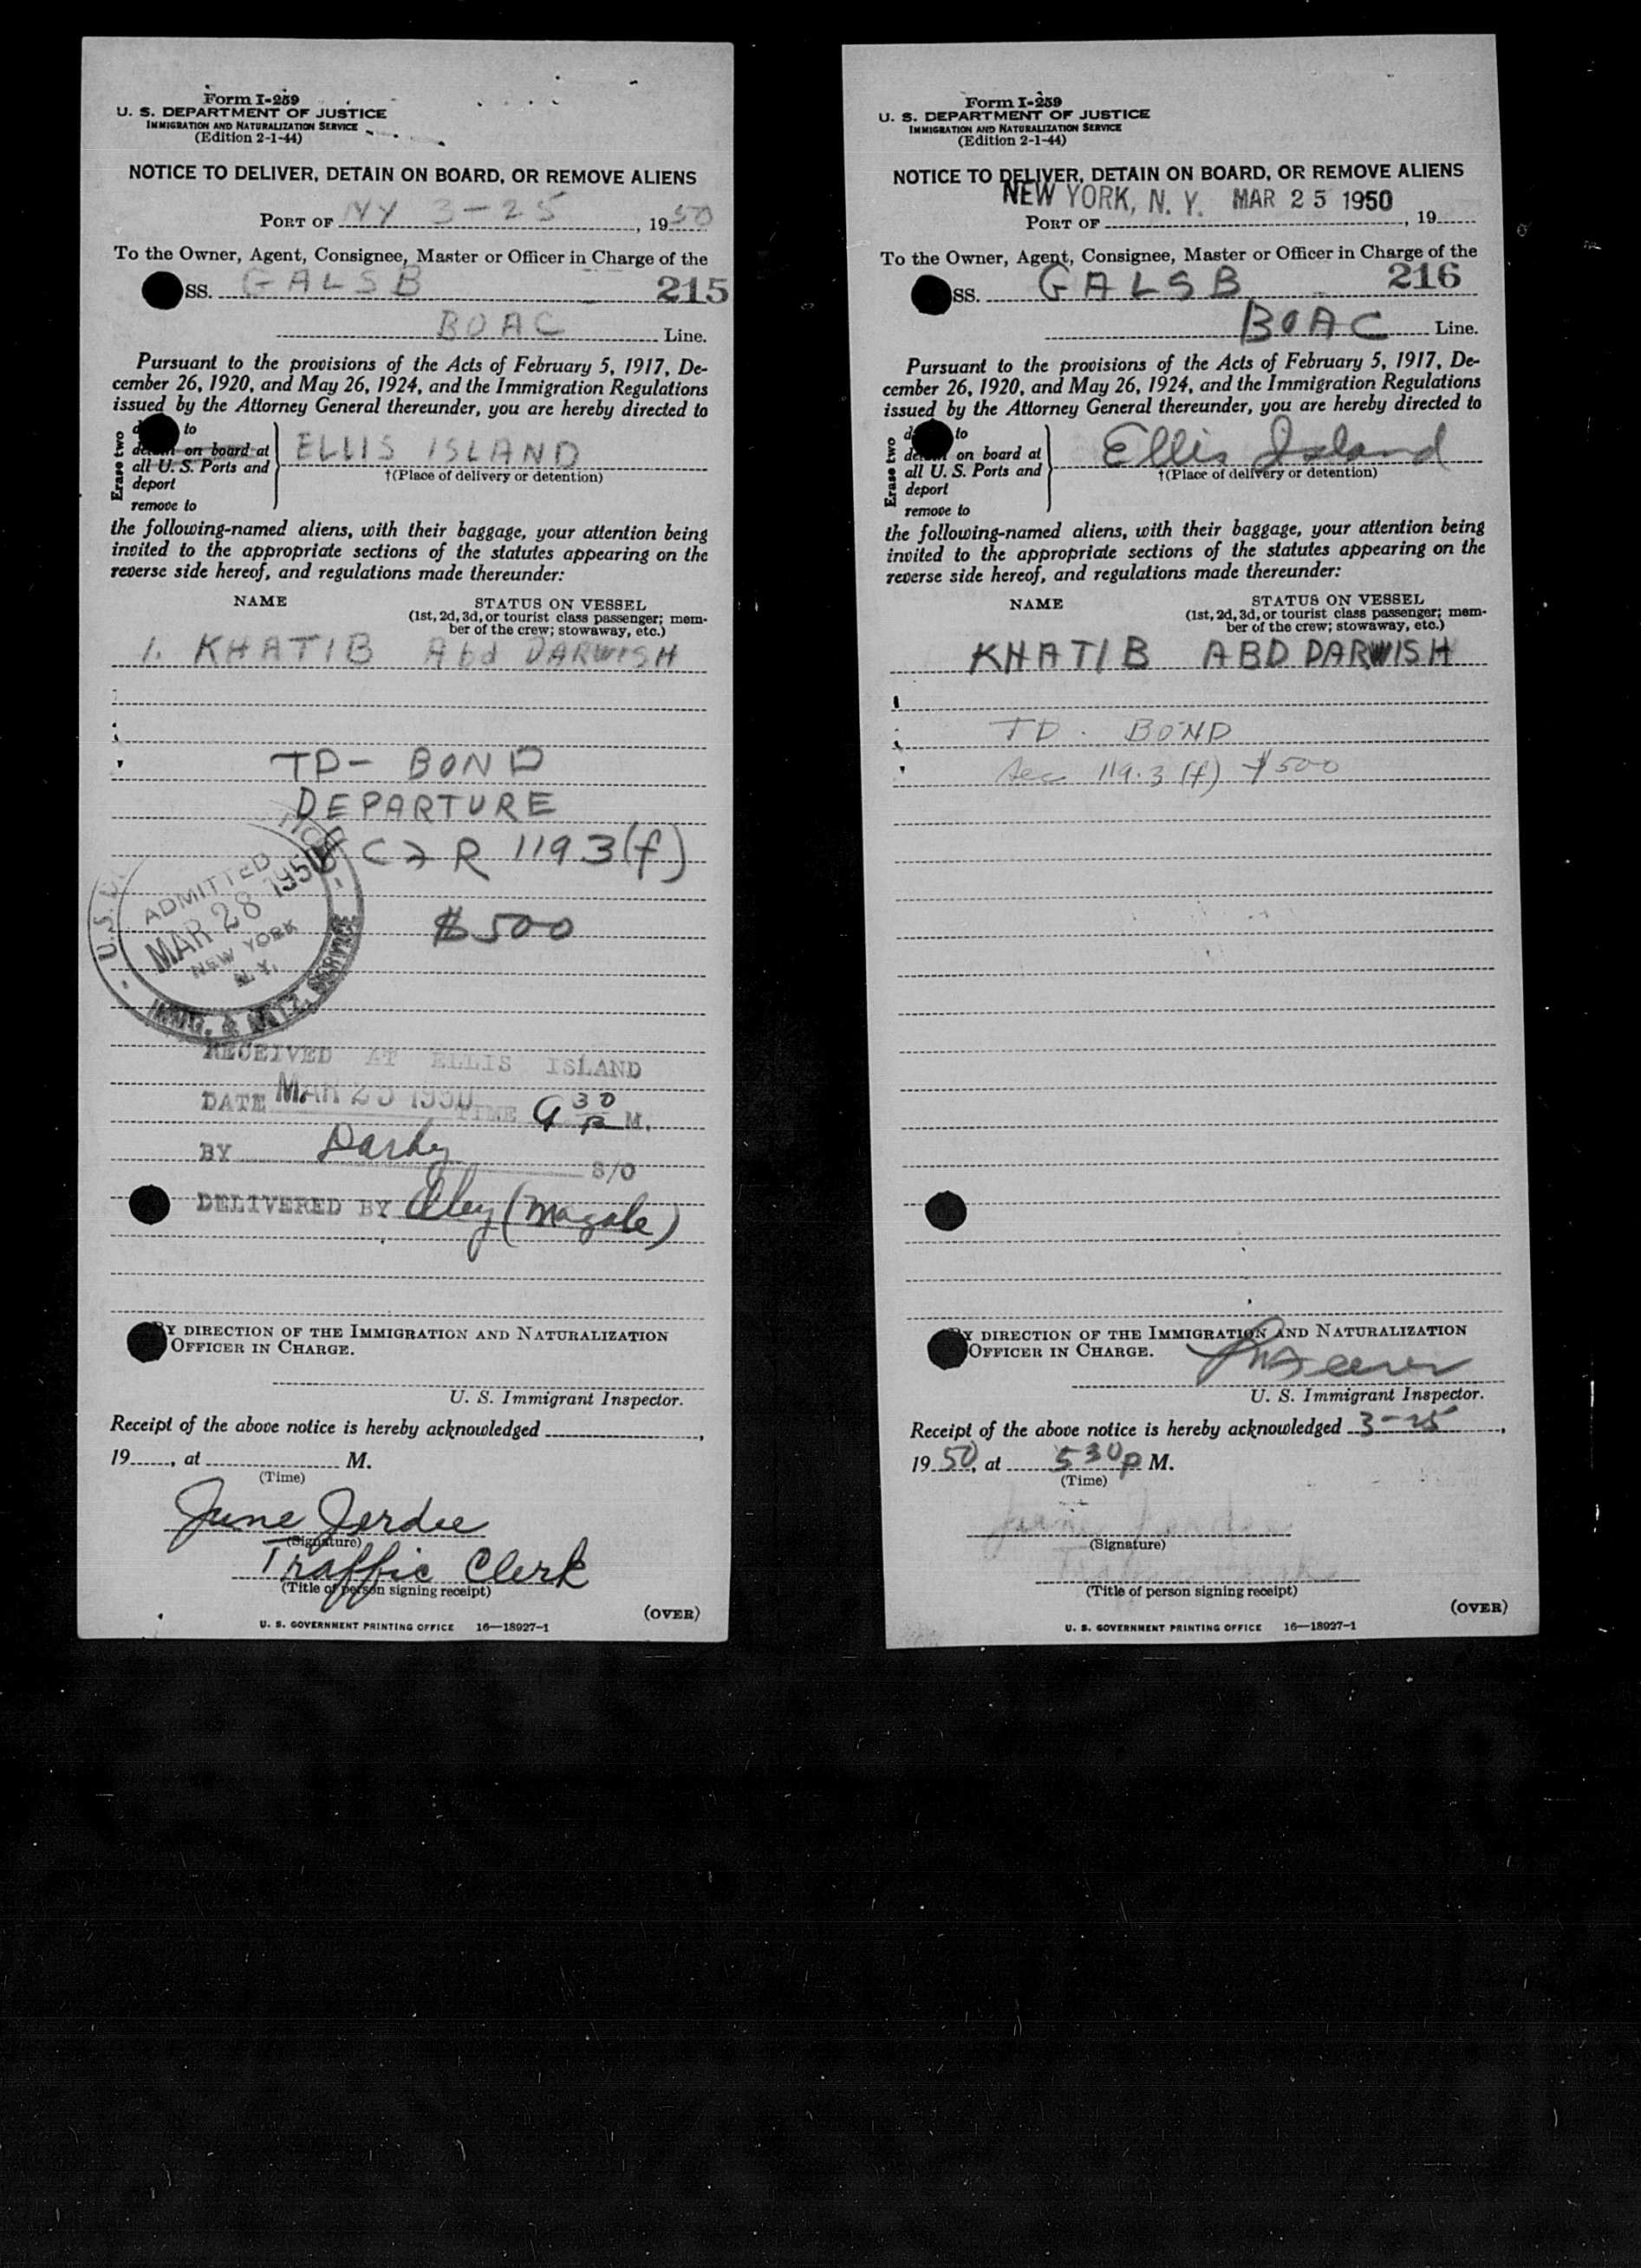 Form I-259
U. S. DEPARTMENT OF JUSTICE
IMMIGRATION AND NATURALIZATION SERVICE
(Edition 2-1-44)
NOTICE TO DELIVER, DETAIN ON BOARD, OR REMOVE ALIENS
PORT OF NY 3-25, 1950
To the Owner, Agent, Consignee, Master or Officer in Charge of the
SS. GALSB 215
BOAC Line.
Pursuant to the provisions of the Acts of February 5, 1917, De-
cember 26, 1920, and May 26, 1924, and the Immigration Regulations
issued by the Attorney General thereunder, you are hereby directed to
Erase two
to
on board at
all U. S. Ports and
deport
remove to
ELLIS ISLAND
†(Place of delivery or detention)
the following-named aliens, with their baggage, your attention being
invited to the appropriate sections of the statutes appearing on the
reverse side hereof, and regulations made thereunder:
NAME STATUS ON VESSEL
(1st, 2d, 3d, or tourist class passenger; mem-
ber of the crew; stowaway, etc.)
1. KHATIB Abd DARWISH
TD- BOND
DEPARTURE
R 119 3(f)
$500
ADMITTED
MAR 28 1950
NEW YORK
N.Y.
IMMIG. & NATZ. SERVICE
RECEIVED AT ELLIS ISLAND
DATE MAR 25 1950 TIME 9 30 P M.
BY Darby S/O
DELIVERED BY
BY DIRECTION OF THE IMMIGRATION AND NATURALIZATION
OFFICER IN CHARGE.
U. S. Immigrant Inspector.
Receipt of the above notice is hereby acknowledged ,
19 , at M.
(Time)
June Jerdee
(Signature)
Traffic Clerk
(Title of person signing receipt)
(OVER)
U. S. GOVERNMENT PRINTING OFFICE 16—18927-1
Form I-259
U. S. DEPARTMENT OF JUSTICE
IMMIGRATION AND NATURALIZATION SERVICE
(Edition 2-1-44)
NOTICE TO DELIVER, DETAIN ON BOARD, OR REMOVE ALIENS
NEW YORK, N. Y. MAR 25 1950
PORT OF , 19
To the Owner, Agent, Consignee, Master or Officer in Charge of the
SS. GALSB 216
BOAC Line.
Pursuant to the provisions of the Acts of February 5, 1917, De-
cember 26, 1920, and May 26, 1924, and the Immigration Regulations
issued by the Attorney General thereunder, you are hereby directed to
Erase two
to
on board at
all U. S. Ports and
deport
remove to
Ellis Island
†(Place of delivery or detention)
the following-named aliens, with their baggage, your attention being
invited to the appropriate sections of the statutes appearing on the
reverse side hereof, and regulations made thereunder:
NAME STATUS ON VESSEL
(1st, 2d, 3d, or tourist class passenger; mem-
ber of the crew; stowaway, etc.)
KHATIB ABD DARWISH
TD. BOND
Sec 119.3 (f) $500
BY DIRECTION OF THE IMMIGRATION AND NATURALIZATION
OFFICER IN CHARGE.
U. S. Immigrant Inspector.
Receipt of the above notice is hereby acknowledged 3-25,
1950, at 530p M.
(Time)
June Jerdee
(Signature)
(Title of person signing receipt)
(OVER)
U. S. GOVERNMENT PRINTING OFFICE 16—18927-1